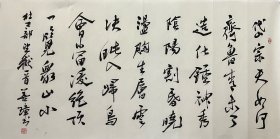 岱宗夫如何
齊魯青未了
造化鍾神秀
陰陽割昏曉
盪胸生層雲
決眥入歸鳥
會當凌絕頂
一览眾山小
杜工部望嶽